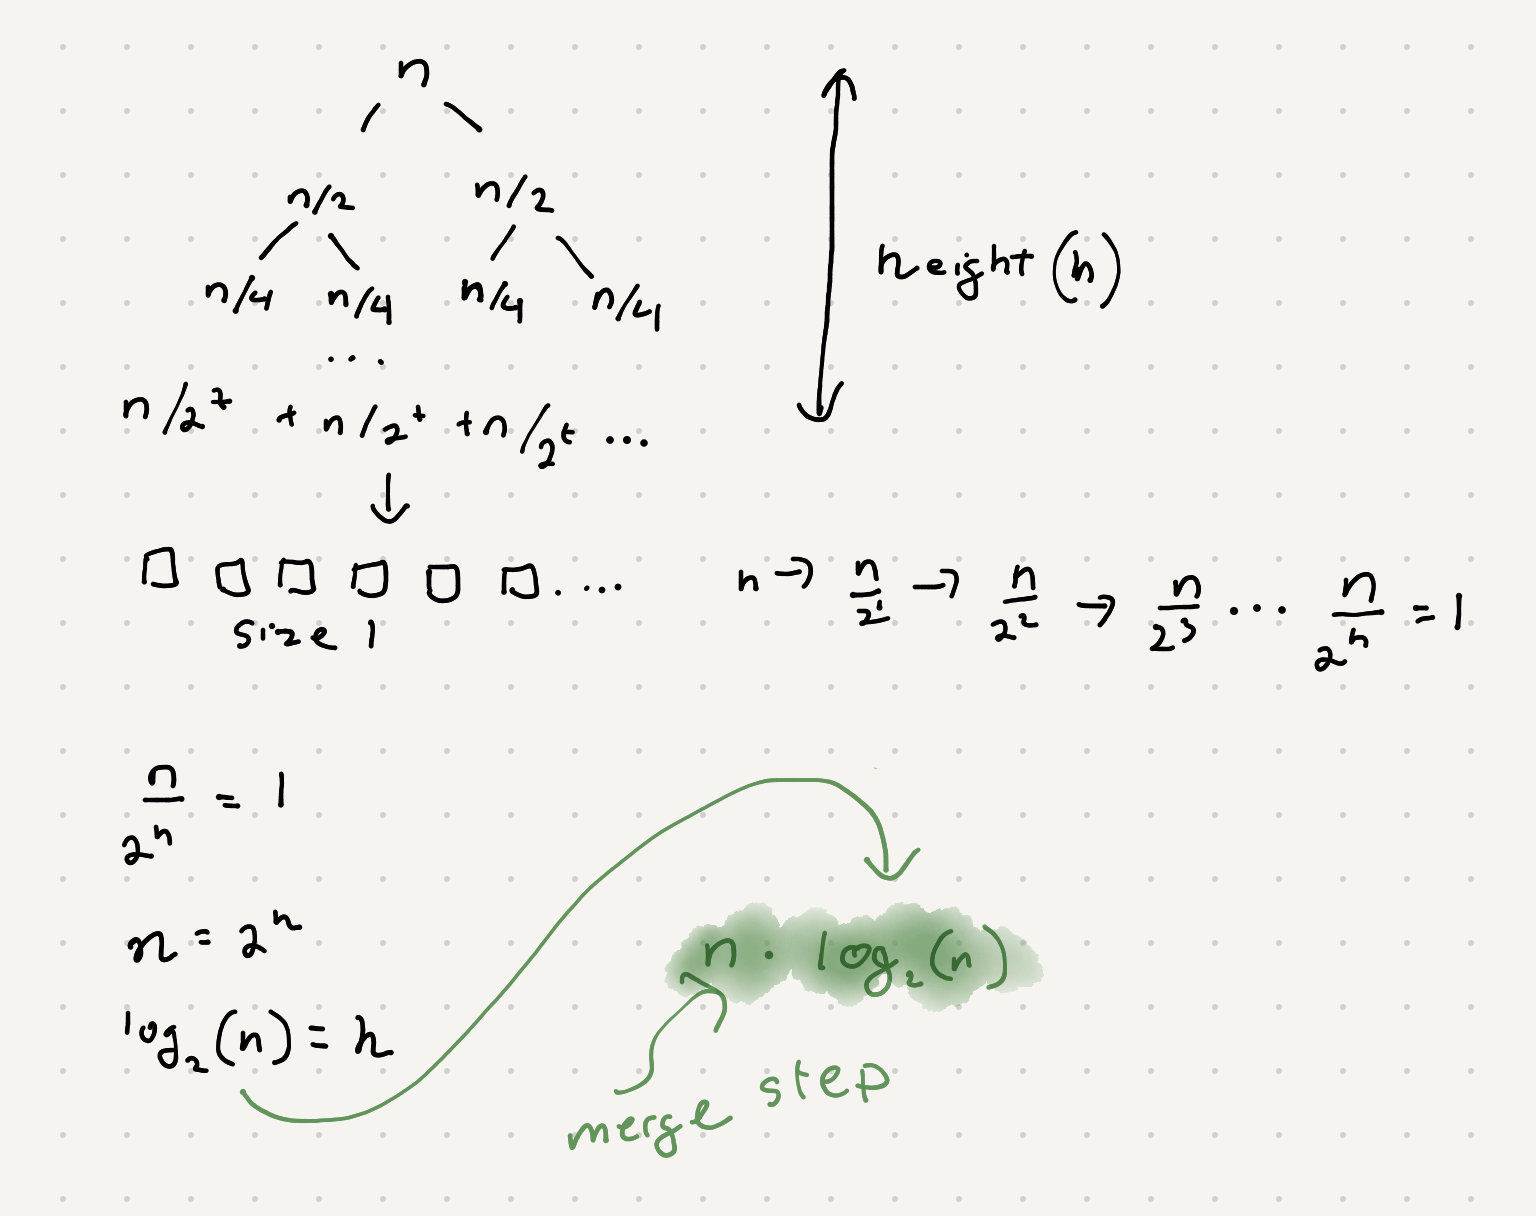 n
n/2 n/2
n/4 n/4 n/4 n/4
height (h)
...
n/2^t + n/2^t + n/2^t ...
size 1
n → n/2^1 → n/2^2 → n/2^3 ... n/2^h = 1
n/2^h = 1
n = 2^h
log₂(n) = h
n · log₂(n)
merge step